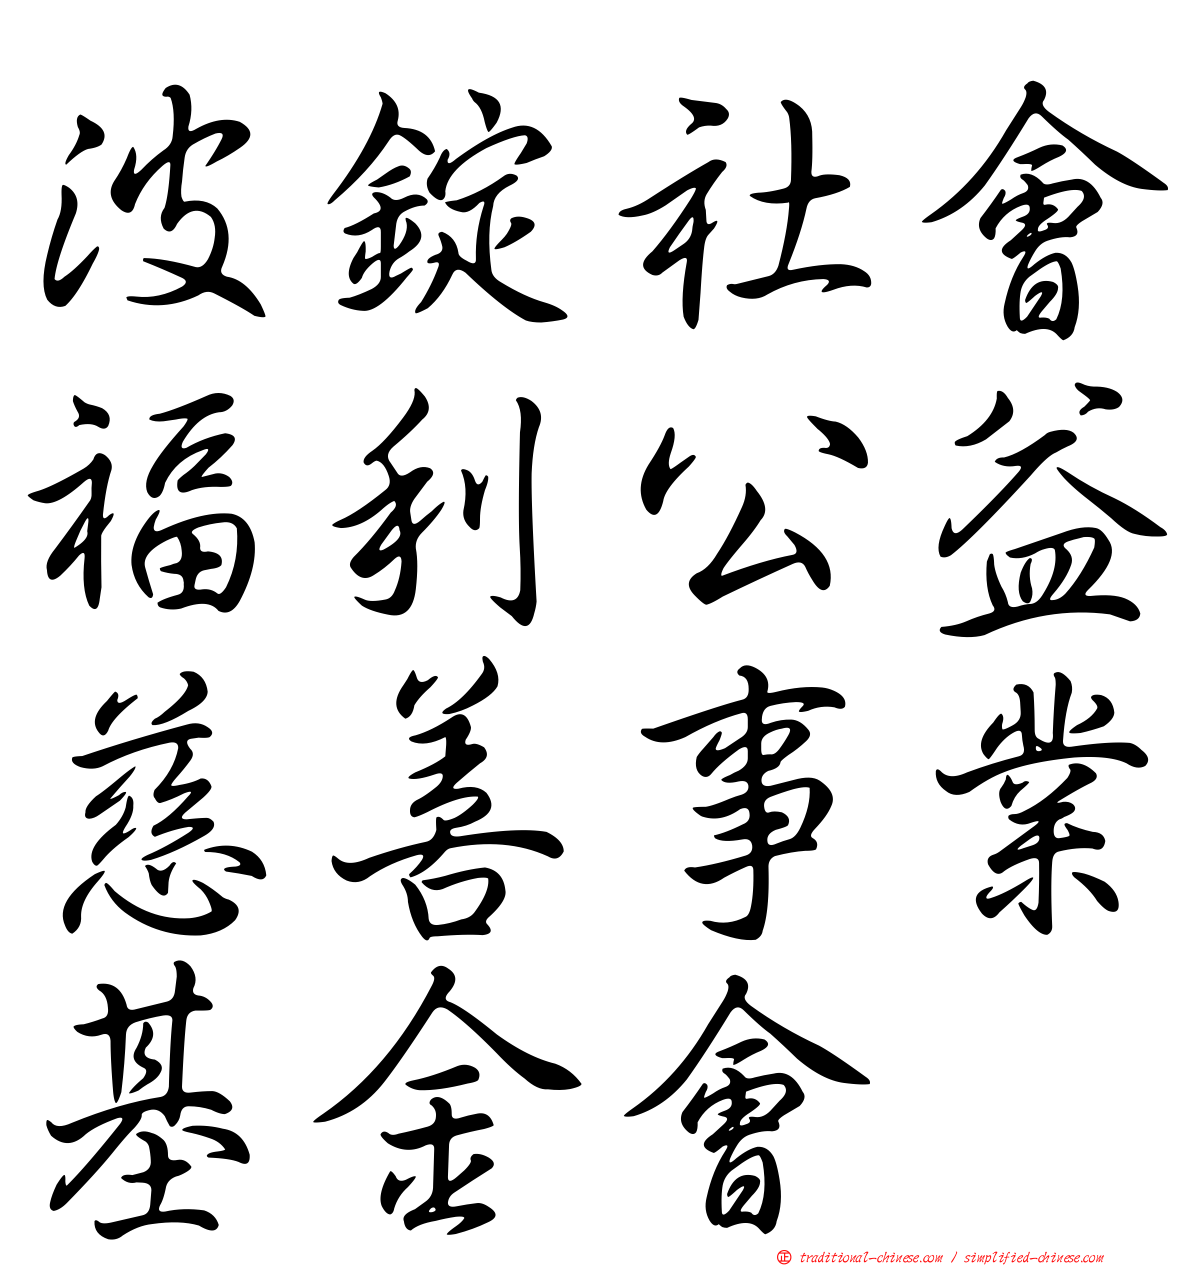 波錠社會
福利公益
慈善事業
基金會
正 traditional-chinese.com / simplified-chinese.com